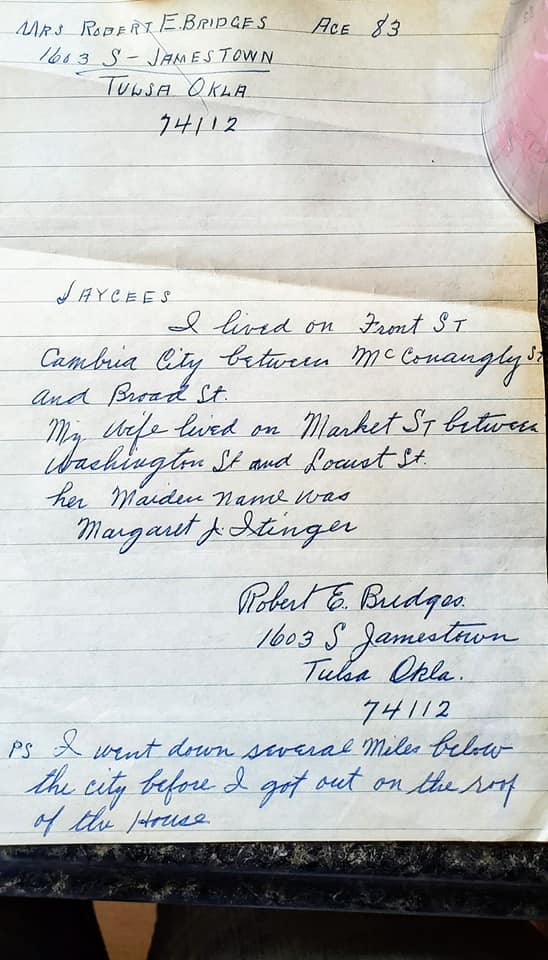 MRS ROBERT E. BRIDGES AGE 83
1603 S - JAMESTOWN
TULSA OKLA
74112
JAYCEES
I lived on Front ST
Cambria City between McConaughy St
and Broad St.
My wife lived on Market ST between
Washington St and Locust St.
her Maiden name was
Margaret J. Itinger
Robert E. Bridges.
1603 S Jamestown
Tulsa Okla.
74112
PS I went down several Miles below
the city before I got out on the roof
of the House